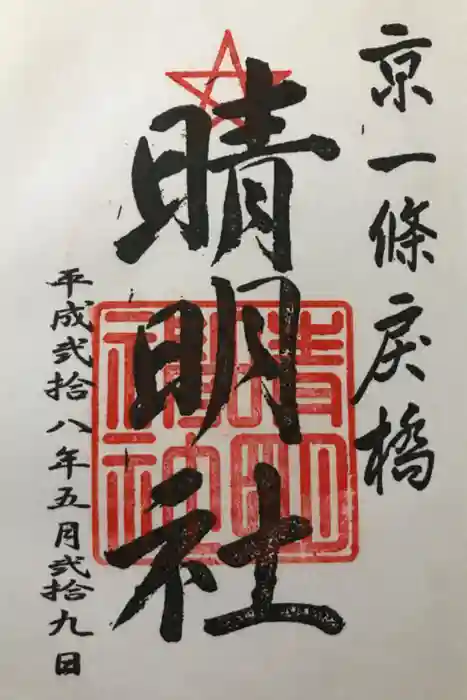 京一條戻橋
晴明社
平成弐拾八年五月弐拾九日
晴明
神社